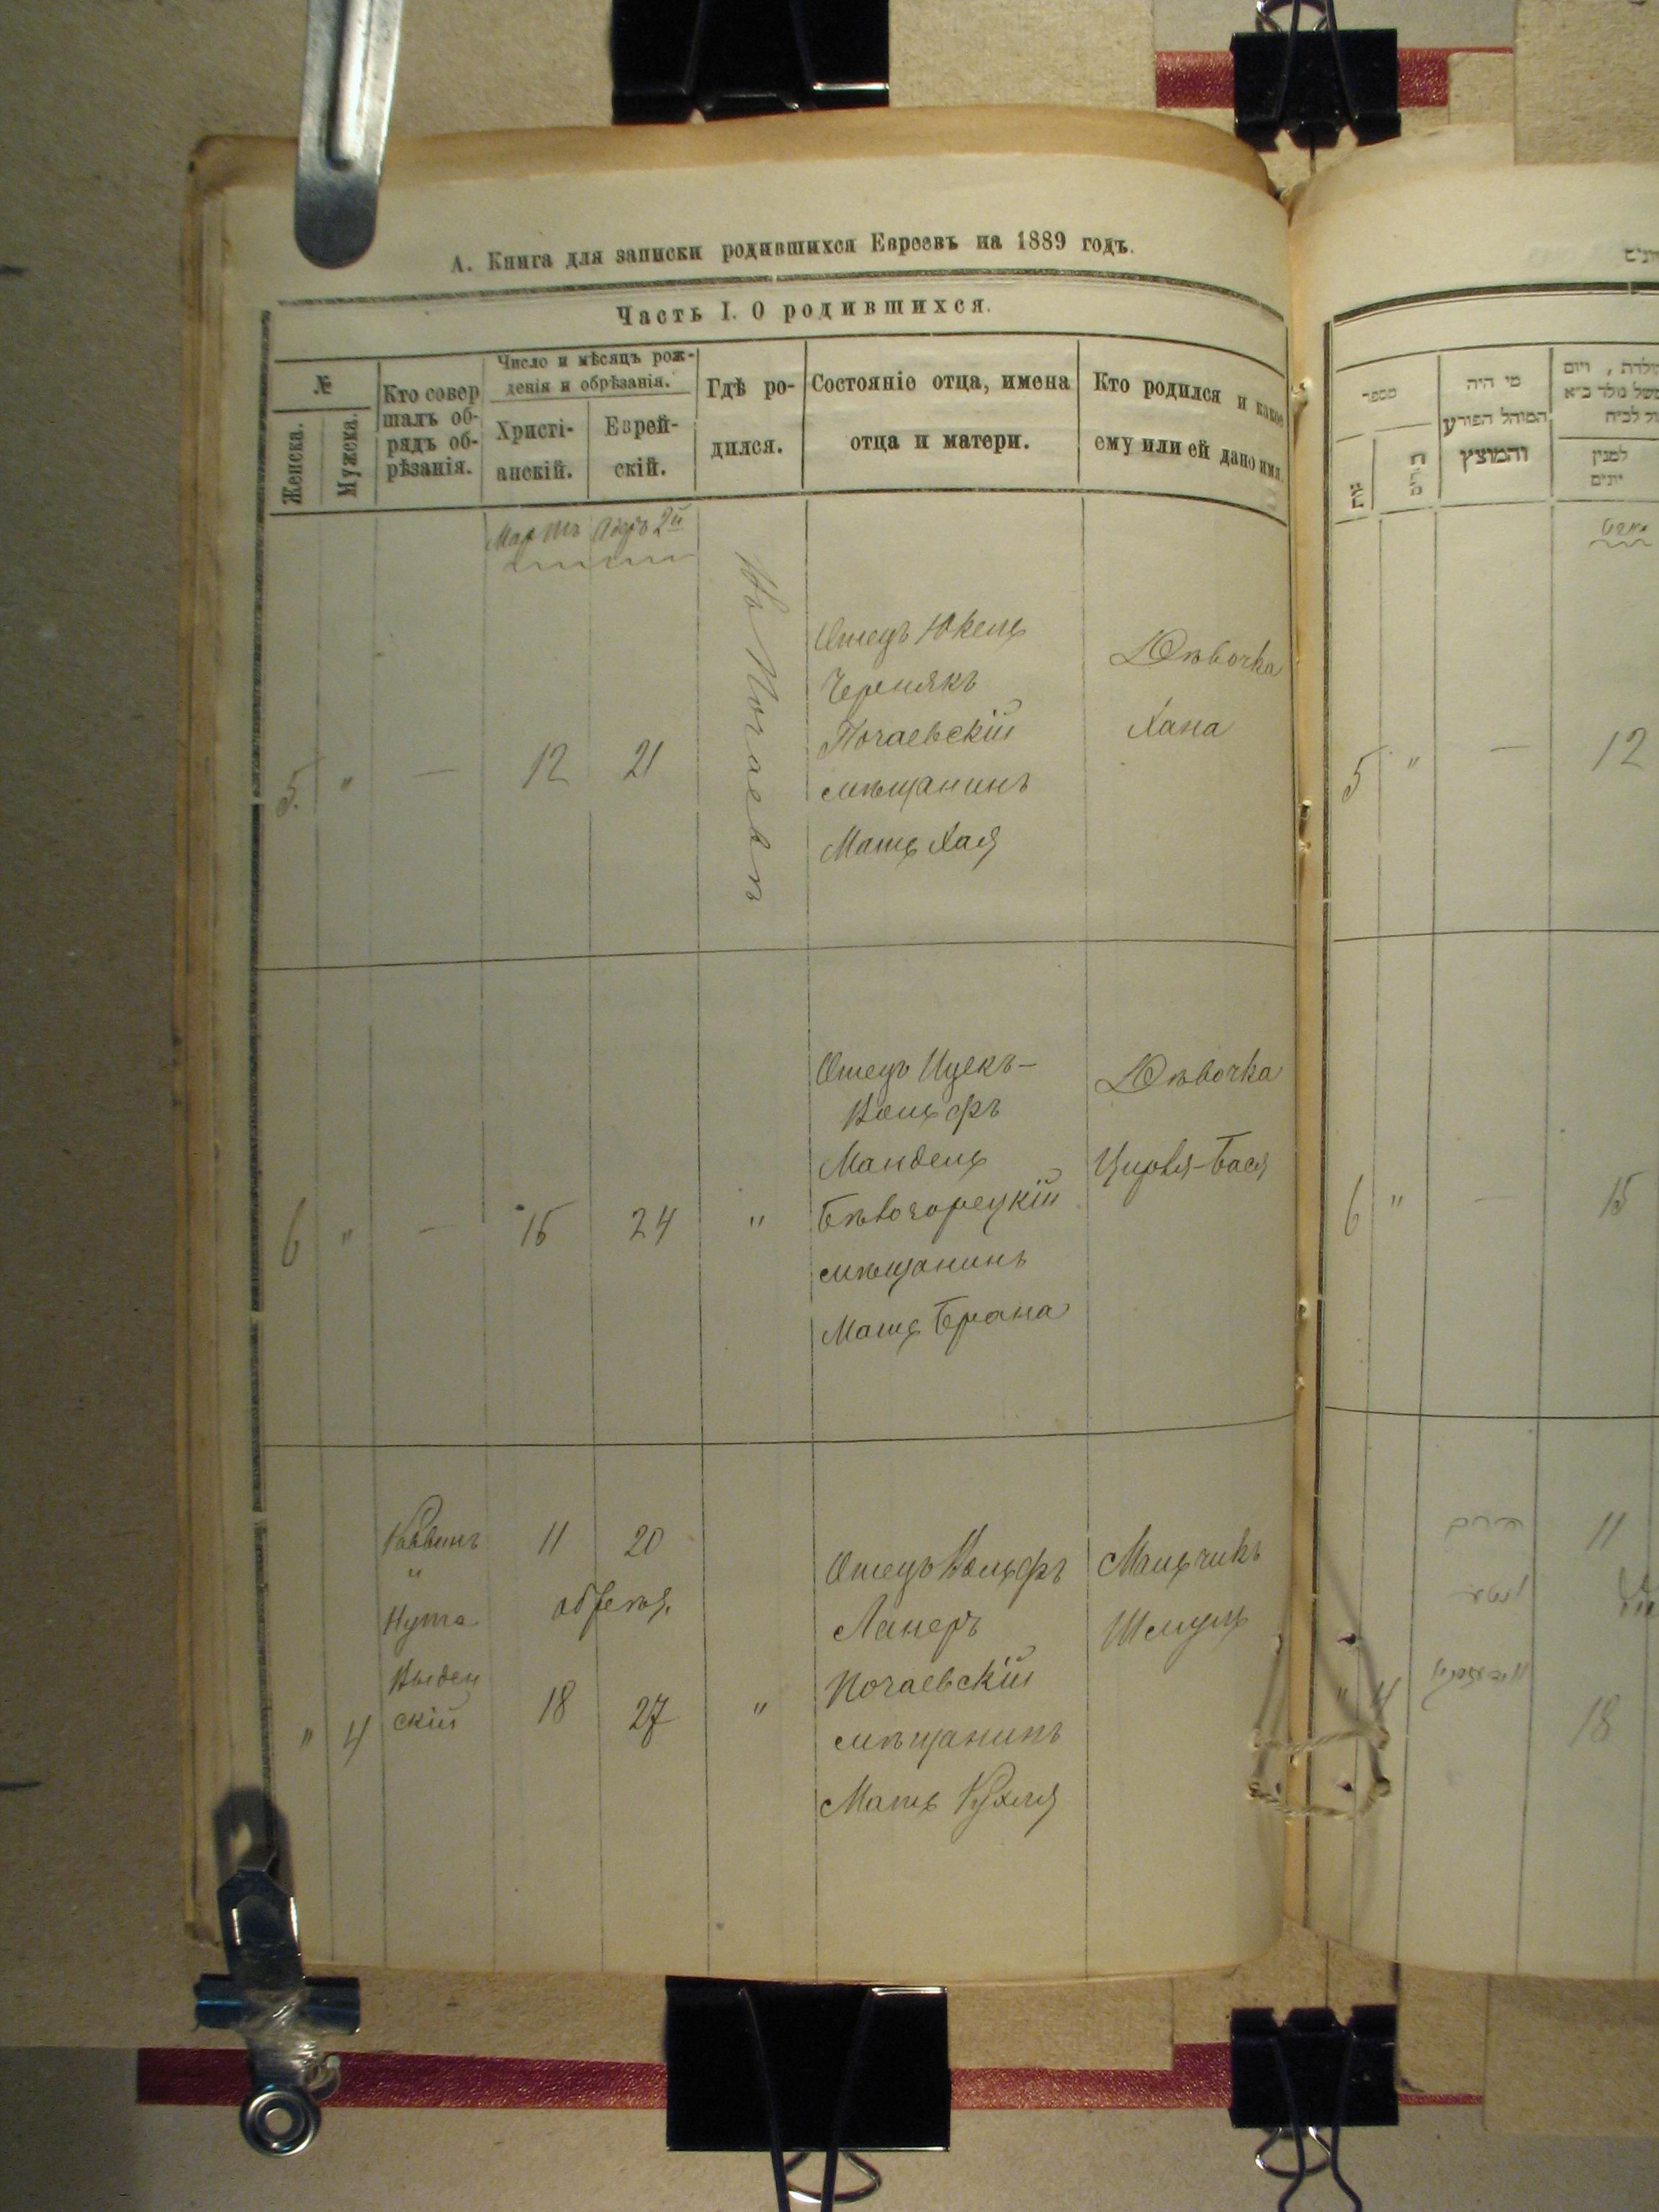 А. Книга для записки родившихся Евреевъ на 1889 годъ.
Часть I. О родившихся.
№
Женска.
Мужеска.
Кто совер
шалъ об-
рядъ об-
рѣзанія.
Число и мѣсяцъ рож-
денія и обрѣзанія.
Христі-
анскій.
Еврей-
скій.
Гдѣ ро-
дился.
Состояніе отца, имена
отца и матери.
Кто родился и какое
ему или ей дано имя.
Мартъ Адаръ 2й
5. " — 12 21
Въ Почаевѣ
Отецъ Юкель
Чернякъ
Почаевскій
мѣщанинъ
Мать Хая
Дѣвочка
Хана
6 " — 15 24 "
Отецъ Ицекъ-
Вольфъ
Мандель
Бѣлогорецкій
мѣщанинъ
Мать Брана
Дѣвочка
Цирля-Бася
" 4
Раввинъ
"
Нута
Выден
скій
11 20
обрезя.
18 27 "
Отецъ Вольфъ
Ланеръ
Почаевскій
мѣщанинъ
Мать Рухля
Мальчикъ
Шмуль
מספר
מי היה
המוהל הפורע
והמוצץ
למנין
יונים
5 " — 12
6 " — 15
11
" 4 18